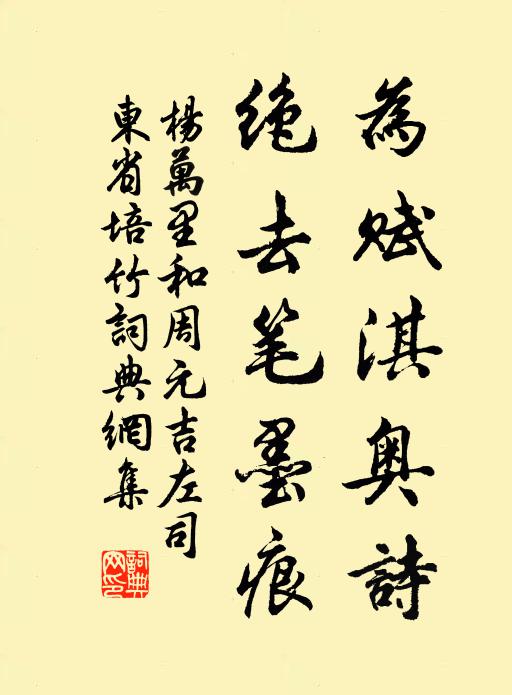 為赋淇奥詩
绝去笔墨痕
楊萬里和周元吉左司
東省培竹詞典網集
詞典网印